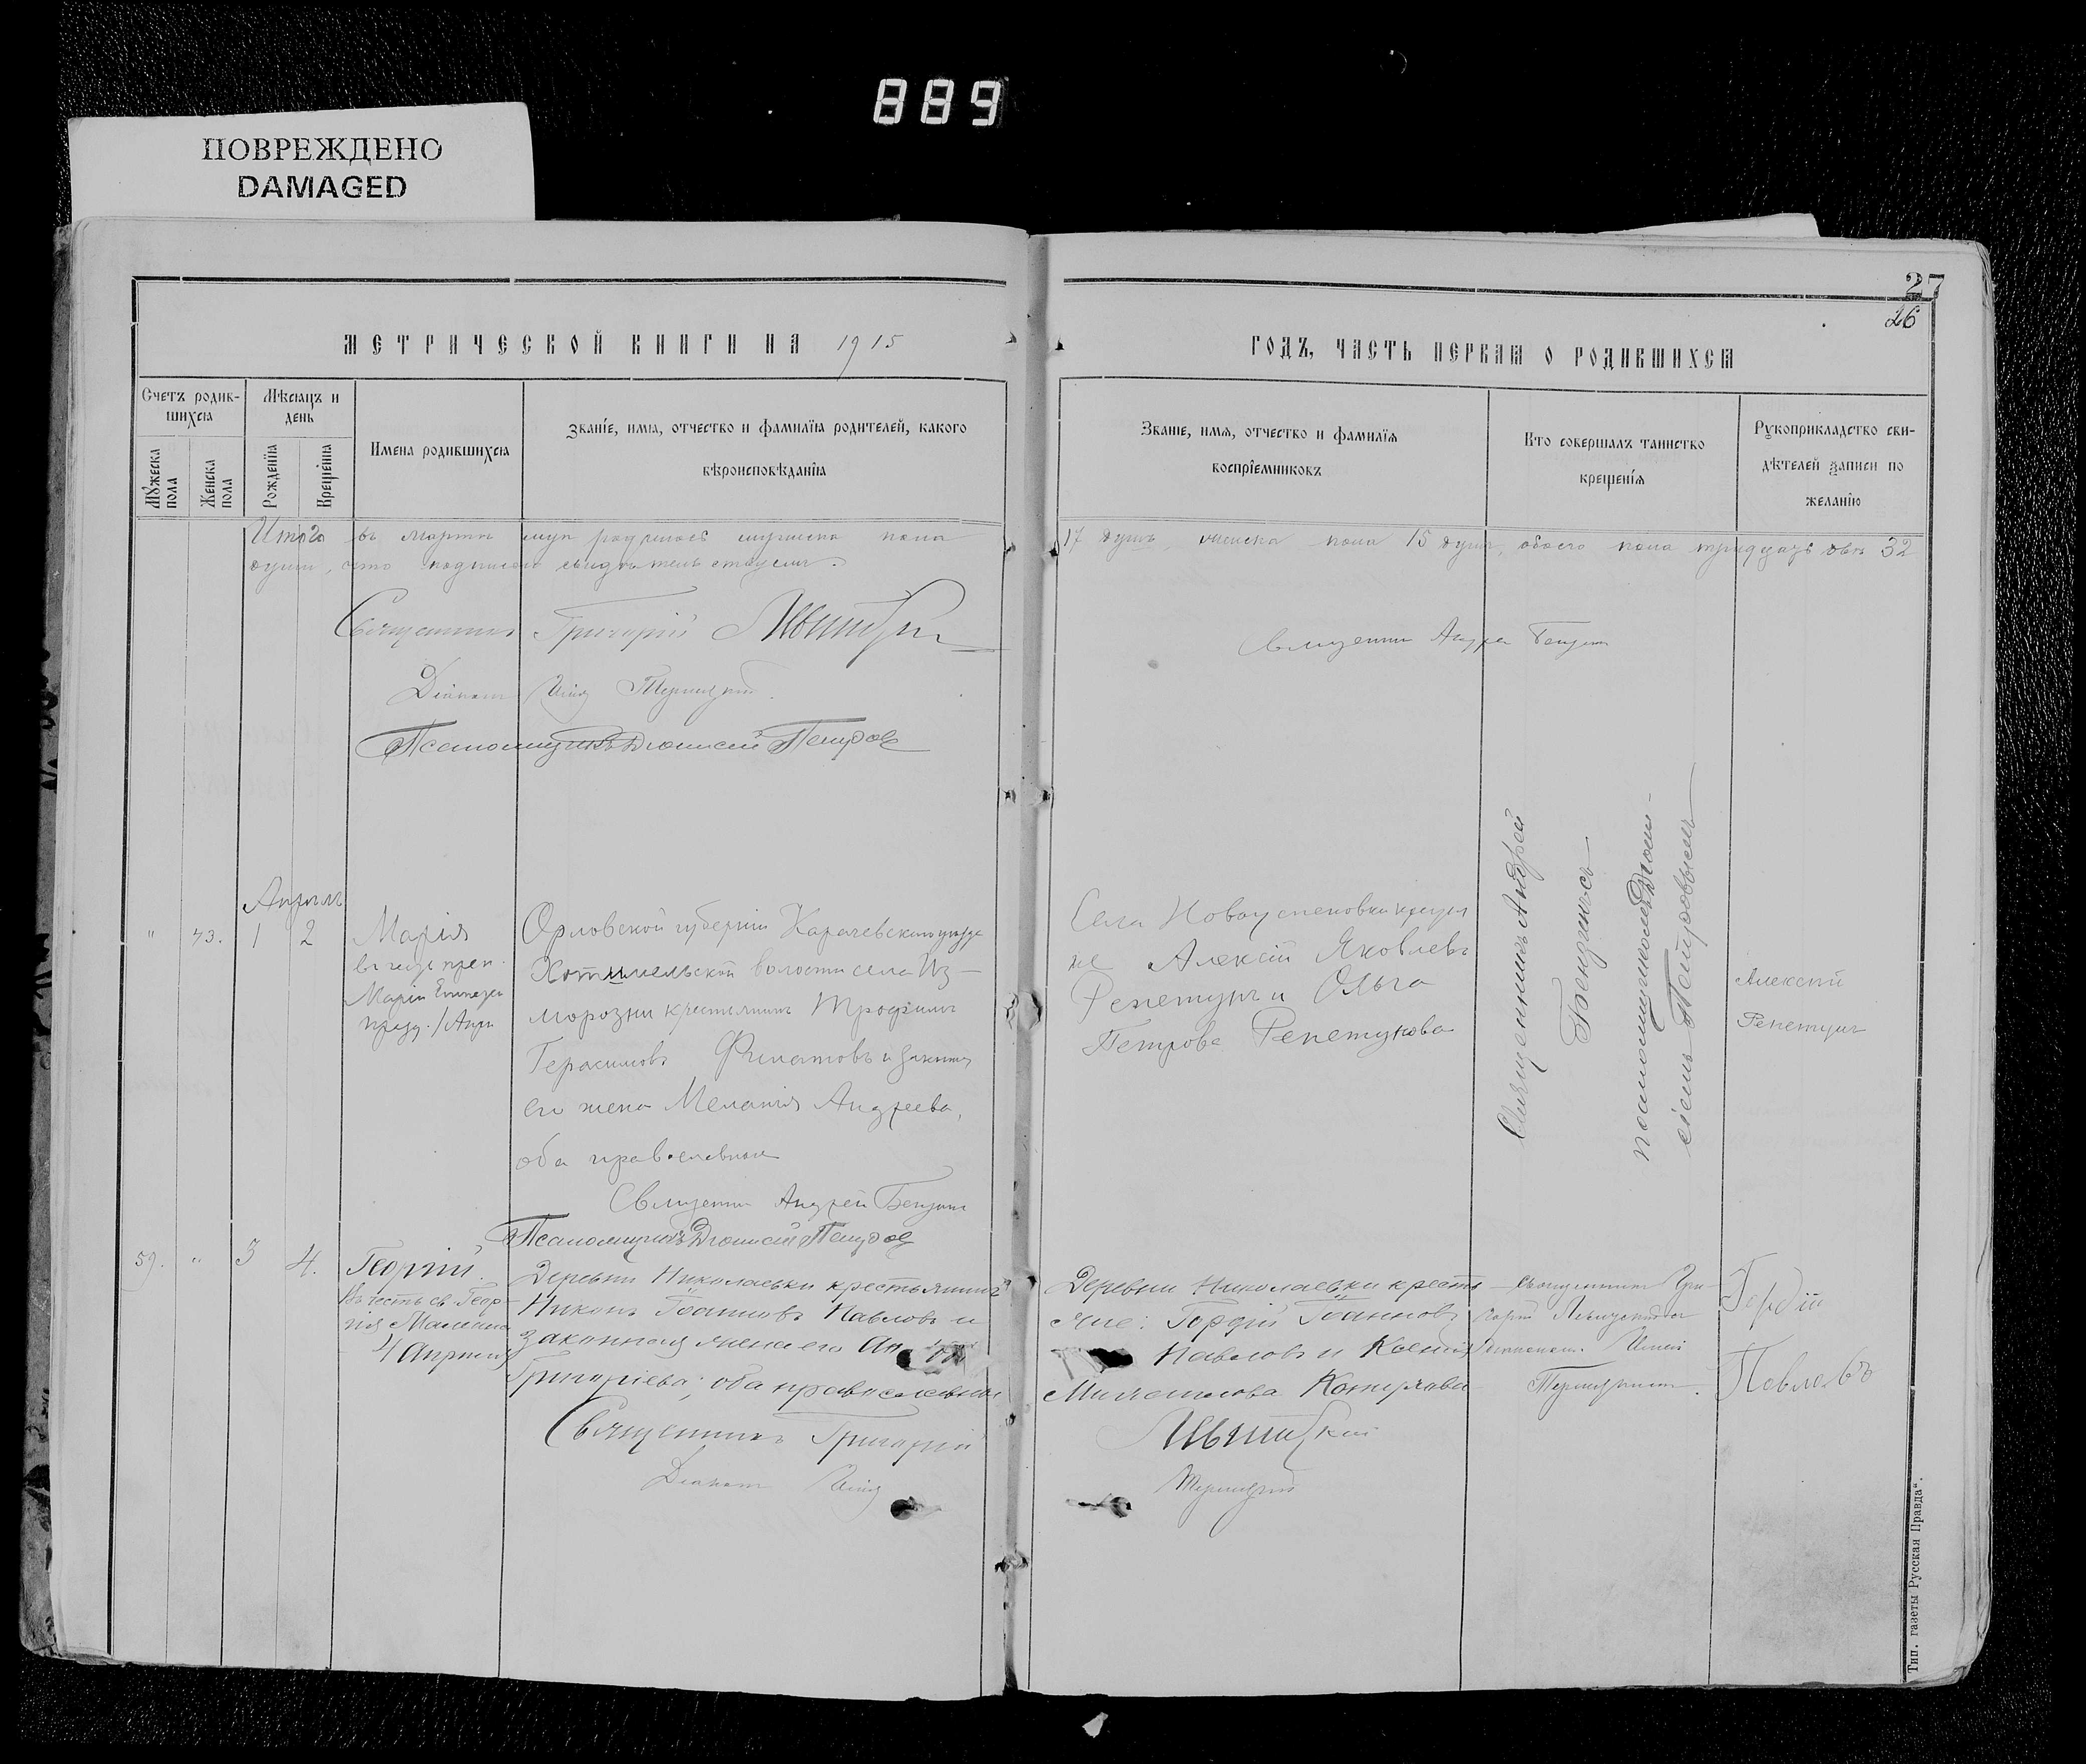 889
ПОВРЕЖДЕНО
DAMAGED
27
26
МЕТРИЧЕСКОЙ КНИГИ НА 1915
ГОДЪ, ЧАСТЬ ПЕРВАЯ О РОДИВШИХСЯ
Счетъ родив-
шихся
Мужеска пола
Женска пола
Мѣсяцъ и
день
Рожденїя
Крещенїя
Имена родившихся
Званїе, имя, отчество и фамилїя родителей, какого
вѣроисповѣданїя
Званїе, имя, отчество и фамилїя
воспрїемниковъ
Кто совершалъ таинство
крещенїя
Рукоприкладство сви-
дѣтелей записи по
желанїю
Итого въ мартѣ мужеска пола
17 душъ, женска пола 15 душъ, обоего пола тридцать двѣ 32
души, что подписомъ свидѣтельствуемъ.
Священникъ Григорій
Діаконъ Илія
Псаломщикъ Діонисій Петровъ
Священникъ Андрей
Апрѣль
" 43. 1 2
Марія
въ честь преп.
Маріи Египет
празд. 1 Апр
Орловской губерніи Карачевскаго уѣзда
волости села Из-
морозни крестьянинъ Трофимъ
Герасимовъ Филатовъ и законная
его жена Меланія Андреева,
оба православные
Священникъ Андрей
Псаломщикъ Діонисій Петровъ
Села Новоуспеновки крестья
не Алексій Яковлевъ
Репетунъ и Ольга
Петрова Репетунова
Священникъ Андрей
псаломщикомъ Діони-
сіемъ Петровымъ
Алексій
Репетунъ
59. " 3 4.
Георгій.
Въ честь св. Геор-
гія
4 Апрѣля
Деревни Николаевки крестьянинъ
Никонъ Іоанновъ Павловъ и
законная жена его
Григоріева; оба православные
Священникъ Григорій
Діаконъ Илія
Деревни Николаевки кресть
яне: Гордій Іоанновъ
Павловъ и Ксенія
Священникъ Гри-
горій
діаконъ Илія
Гордій
Павловъ
Тип. газеты Русская Правда".